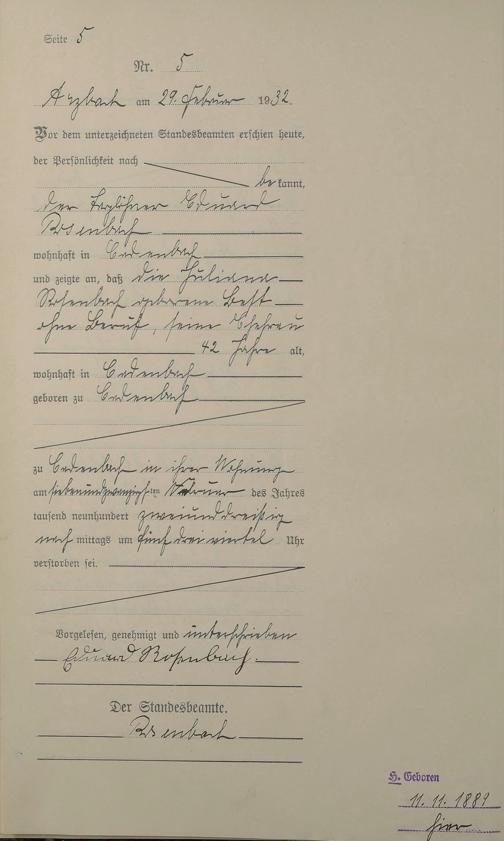 Seite 5
Nr. 5
Arzbach am 29. Februar 1932.
Vor dem unterzeichneten Standesbeamten erschien heute,
der Persönlichkeit nach
bekannt,
der Taglöhner Eduard
Rosenbach
wohnhaft in Cadenbach
und zeigte an, daß die Juliana
Rosenbach geborene Best
ohne Beruf, seine Ehefrau
42 Jahre alt,
wohnhaft in Cadenbach
geboren zu Cadenbach
zu Cadenbach in ihrer Wohnung
am siebenundzwanzigsten Februar des Jahres
tausend neunhundert zweiunddreißig
nachmittags um fünf dreiviertel Uhr
verstorben sei.
Vorgelesen, genehmigt und unterschrieben
Eduard Rosenbach.
Der Standesbeamte.
Rosenbach
H. Geboren
11. 11. 1889
hier